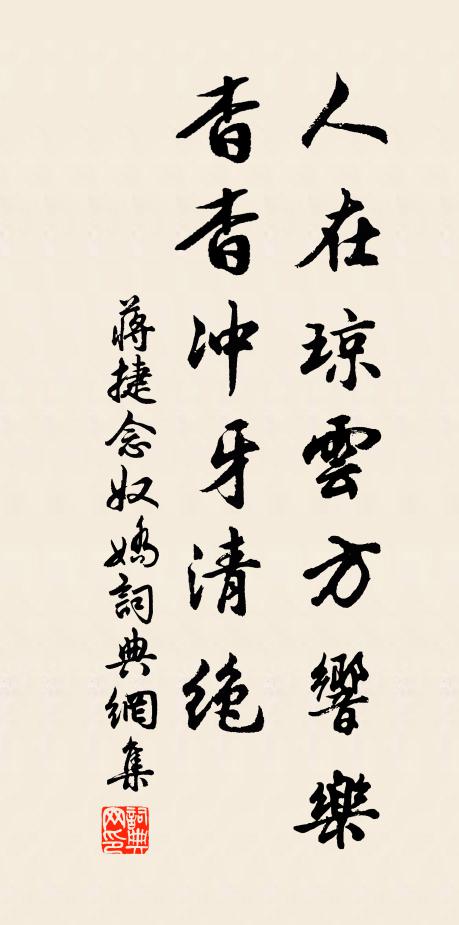 人在琼雲方響樂
杳杳冲牙清絶
蔣捷念奴嬌詞典網集
詞典网印